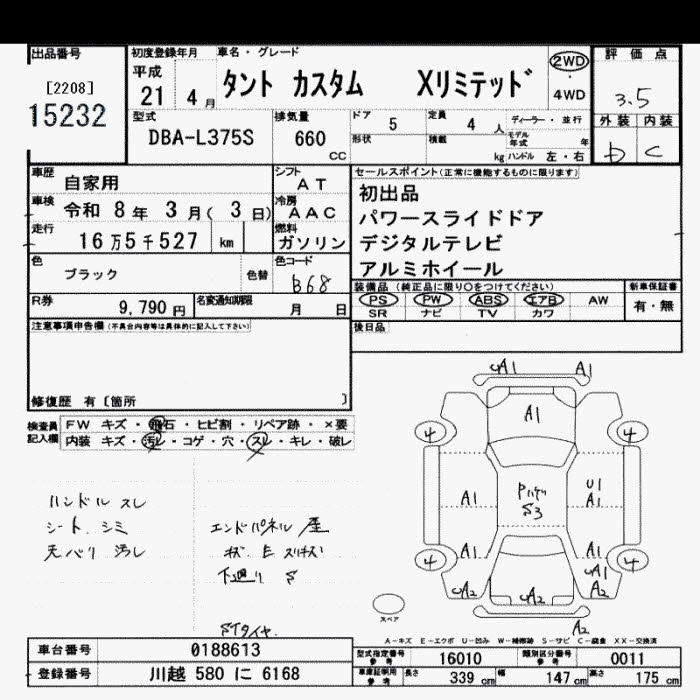 出品番号 初度登録年月 車名・グレード 評価点
[2208] 平成 21 4月 タント カスタム Xリミテッド 2WD ・ 4WD 3.5
15232
型式 排気量 ドア 5 定員 4人 ディーラー・並行 外装 内装
DBA-L375S 660 CC 形状 積載 kg モデル年式 年 ハンドル 左・右 b C
車歴 自家用 シフト AT セールスポイント(正常に機能するものに限ります)
車検 令和 8年 3月( 3日) 冷房 AAC 初出品
走行 16万5千527 km 燃料 ガソリン パワースライドドア
デジタルテレビ
色 ブラック 色替 色コード b68 アルミホイール
装備品 (純正品に限り○をつけてください) 新車保証書
R券 9,790円 名変通知期限 月 日 PS PW ABS エアB AW 有・無
SR ナビ TV カワ
注意事項申告欄(不具合内容等は具体的に記入して下さい) 後日品
修復歴 有〔箇所 〕
検査員記入欄 FW キズ・飛石・ヒビ割・リペア跡・×要
内装 キズ・汚レ・コゲ・穴・スレ・キレ・破レ
A1 A1
A1
4 4
A1 Pハゲ S3 U1 A1
A1 A1
4 4
A2 A1 A2
A2
A2
ハンドル スレ
シート シミ エンドパネル
天バリ 汚レ キズ E
下廻り S
STタイヤ
スペア
A-キズ E-エクボ U-凹み W-補修跡 S-サビ C-腐食 XX-交換済
車台番号 0188613 型式指定番号 参考 16010 類別区分番号 参考 0011
登録番号 川越 580 に 6168 車庫証明用 参考 長さ 339 cm 幅 147 cm 高さ 175 cm